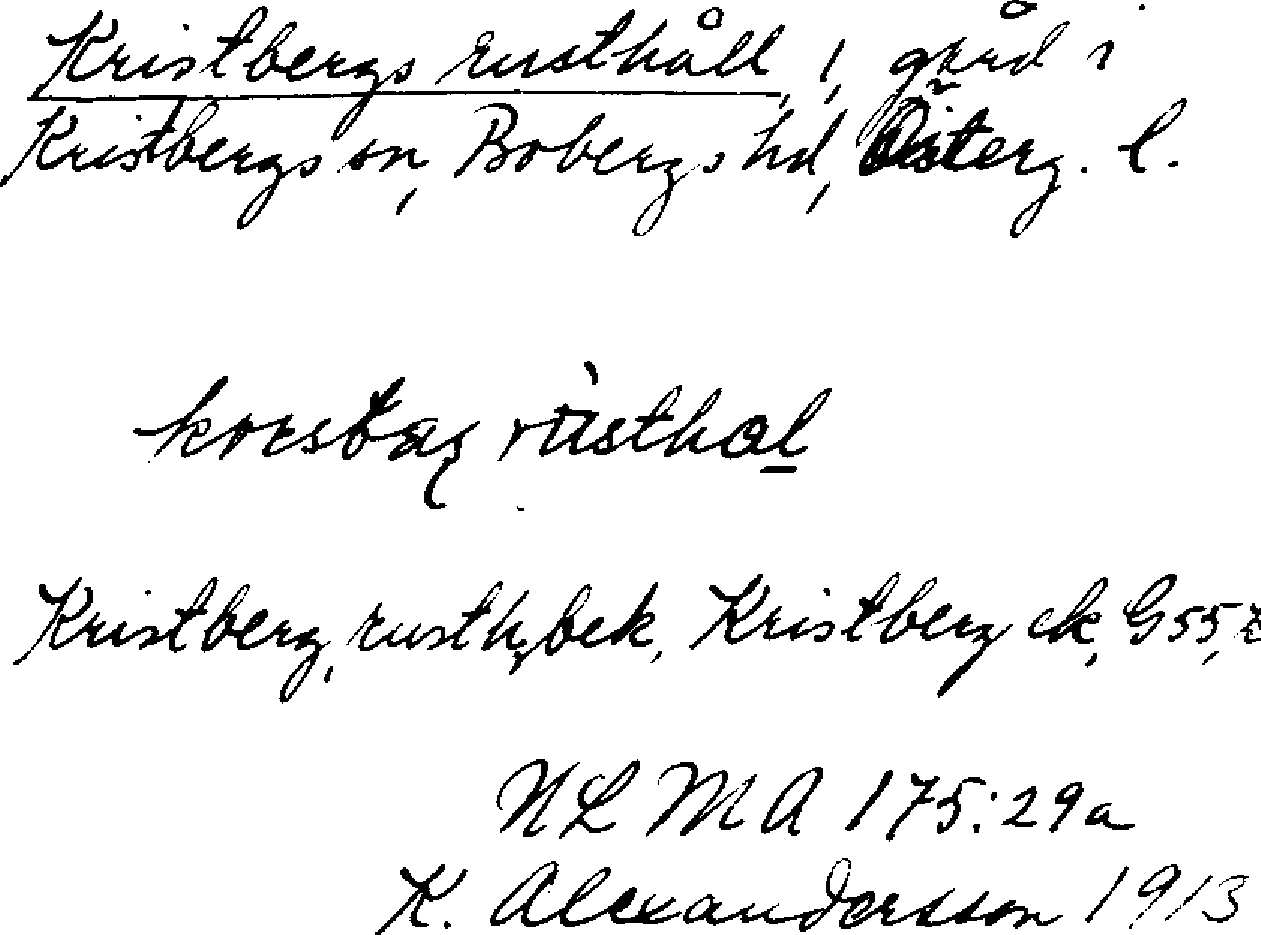 Kristbergs rusthåll, 1, gård i
Kristbergs sn, Bobergs hd, Österg. l.
rùsthal
Kristberg, rusth, bek, Kristberg ck, G55,
NLMA 175:29a
K. Alexandersson 1913